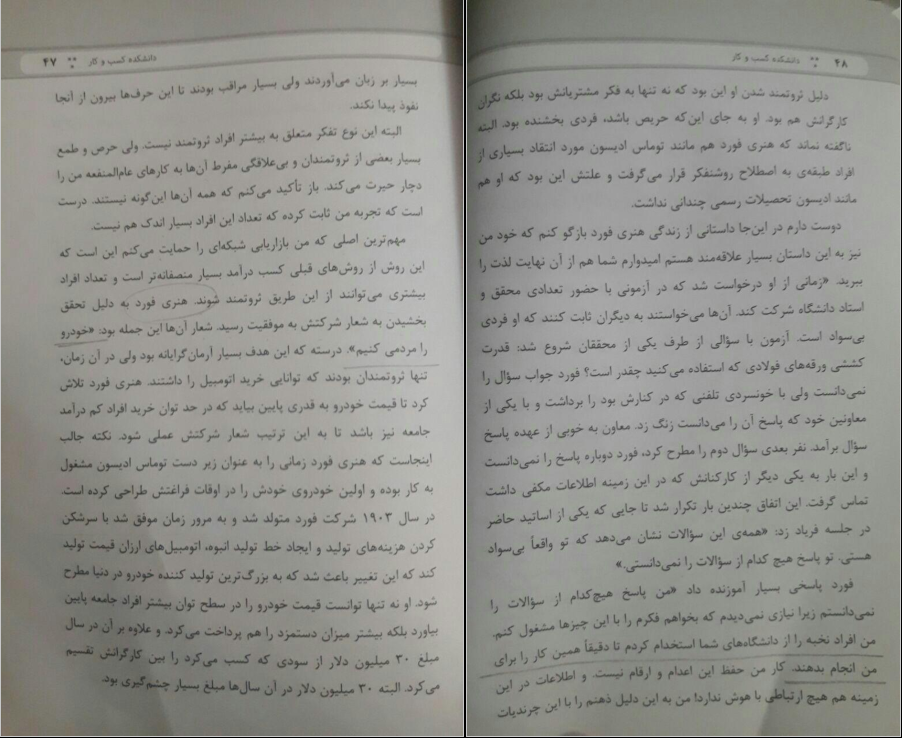 دانشکده کسب و کار ۴۷
بسیار بر زبان می‌آوردند ولی بسیار مراقب بودند تا این حرف‌ها بیرون از آنجا
نفوذ پیدا نکند.
البته این نوع تفکر متعلق به بیشتر افراد ثروتمند نیست. ولی حرص و طمع
بسیار بعضی از ثروتمندان و بی‌علاقگی مفرط آن‌ها به کارهای عام‌المنفعه من را
دچار حیرت می‌کند. باز تأکید می‌کنم که همه آن‌ها این‌گونه نیستند. درست
است که تجربه من ثابت کرده که تعداد این افراد بسیار اندک هم نیست.
مهم‌ترین اصلی که من بازاریابی شبکه‌ای را حمایت می‌کنم این است که
این روش از روش‌های قبلی کسب درآمد بسیار منصفانه‌تر است و تعداد افراد
بیشتری می‌توانند از این طریق ثروتمند شوند. هنری فورد به دلیل تحقق
بخشیدن به شعار شرکتش به موفقیت رسید. شعار آن‌ها این جمله بود: «خودرو
را مردمی کنیم». درسته که این هدف بسیار آرمان‌گرایانه بود ولی در آن زمان،
تنها ثروتمندان بودند که توانایی خرید اتومبیل را داشتند. هنری فورد تلاش
کرد تا قیمت خودرو به قدری پایین بیاید که در حد توان خرید افراد کم درآمد
جامعه نیز باشد تا به این ترتیب شعار شرکتش عملی شود. نکته جالب
اینجاست که هنری فورد زمانی را به عنوان زیر دست توماس ادیسون مشغول
به کار بوده و اولین خودروی خودش را در اوقات فراغتش طراحی کرده است.
در سال ۱۹۰۳ شرکت فورد متولد شد و به مرور زمان موفق شد با سرشکن
کردن هزینه‌های تولید و ایجاد خط تولید انبوه، اتومبیل‌های ارزان قیمت تولید
کند که این تغییر باعث شد که به بزرگ‌ترین تولید کننده خودرو در دنیا مطرح
شود. او نه تنها توانست قیمت خودرو را در سطح توان بیشتر افراد جامعه پایین
بیاورد بلکه بیشتر میزان دستمزد را هم پرداخت می‌کرد. و علاوه بر آن در سال
مبلغ ۳۰ میلیون دلار از سودی که کسب می‌کرد را بین کارگرانش تقسیم
می‌کرد. البته ۳۰ میلیون دلار در آن سال‌ها مبلغ بسیار چشم‌گیری بود.
۴۸ دانشکده کسب و کار
دلیل ثروتمند شدن او این بود که نه تنها به فکر مشتریانش بود بلکه نگران
کارگرانش هم بود. او به جای این‌که حریص باشد، فردی بخشنده بود. البته
ناگفته نماند که هنری فورد هم مانند توماس ادیسون مورد انتقاد بسیاری از
افراد طبقه‌ی به اصطلاح روشنفکر قرار می‌گرفت و علتش این بود که او هم
مانند ادیسون تحصیلات رسمی چندانی نداشت.
دوست دارم در این‌جا داستانی از زندگی هنری فورد بازگو کنم که خود من
نیز به این داستان بسیار علاقه‌مند هستم امیدوارم شما هم از آن نهایت لذت را
ببرید. «زمانی از او درخواست شد که در آزمونی با حضور تعدادی محقق و
استاد دانشگاه شرکت کند. آن‌ها می‌خواستند به دیگران ثابت کنند که او فردی
بی‌سواد است. آزمون با سؤالی از طرف یکی از محققان شروع شد: قدرت
کششی ورقه‌های فولادی که استفاده می‌کنید چقدر است؟ فورد جواب سؤال را
نمی‌دانست ولی با خونسردی تلفنی که در کنارش بود را برداشت و با یکی از
معاونین خود که پاسخ آن را می‌دانست زنگ زد. معاون به خوبی از عهده پاسخ
سؤال برآمد. نفر بعدی سؤال دوم را مطرح کرد، فورد دوباره پاسخ را نمی‌دانست
و این بار به یکی دیگر از کارکنانش که در این زمینه اطلاعات مکفی داشت
تماس گرفت. این اتفاق چندین بار تکرار شد تا جایی که یکی از اساتید حاضر
در جلسه فریاد زد: «همه‌ی این سؤالات نشان می‌دهد که تو واقعاً بی‌سواد
هستی. تو پاسخ هیچ کدام از سؤالات را نمی‌دانستی.»
فورد پاسخی بسیار آموزنده داد «من پاسخ هیچ‌کدام از سؤالات را
نمی‌دانستم زیرا نیازی نمی‌دیدم که بخواهم فکرم را با این چیزها مشغول کنم.
من افراد نخبه را از دانشگاه‌های شما استخدام کردم تا دقیقاً همین کار را برای
من انجام بدهند. کار من حفظ این اعدام و ارقام نیست. و اطلاعات در این
زمینه هم هیچ ارتباطی با هوش ندارد! من به این دلیل ذهنم را با این چرندیات